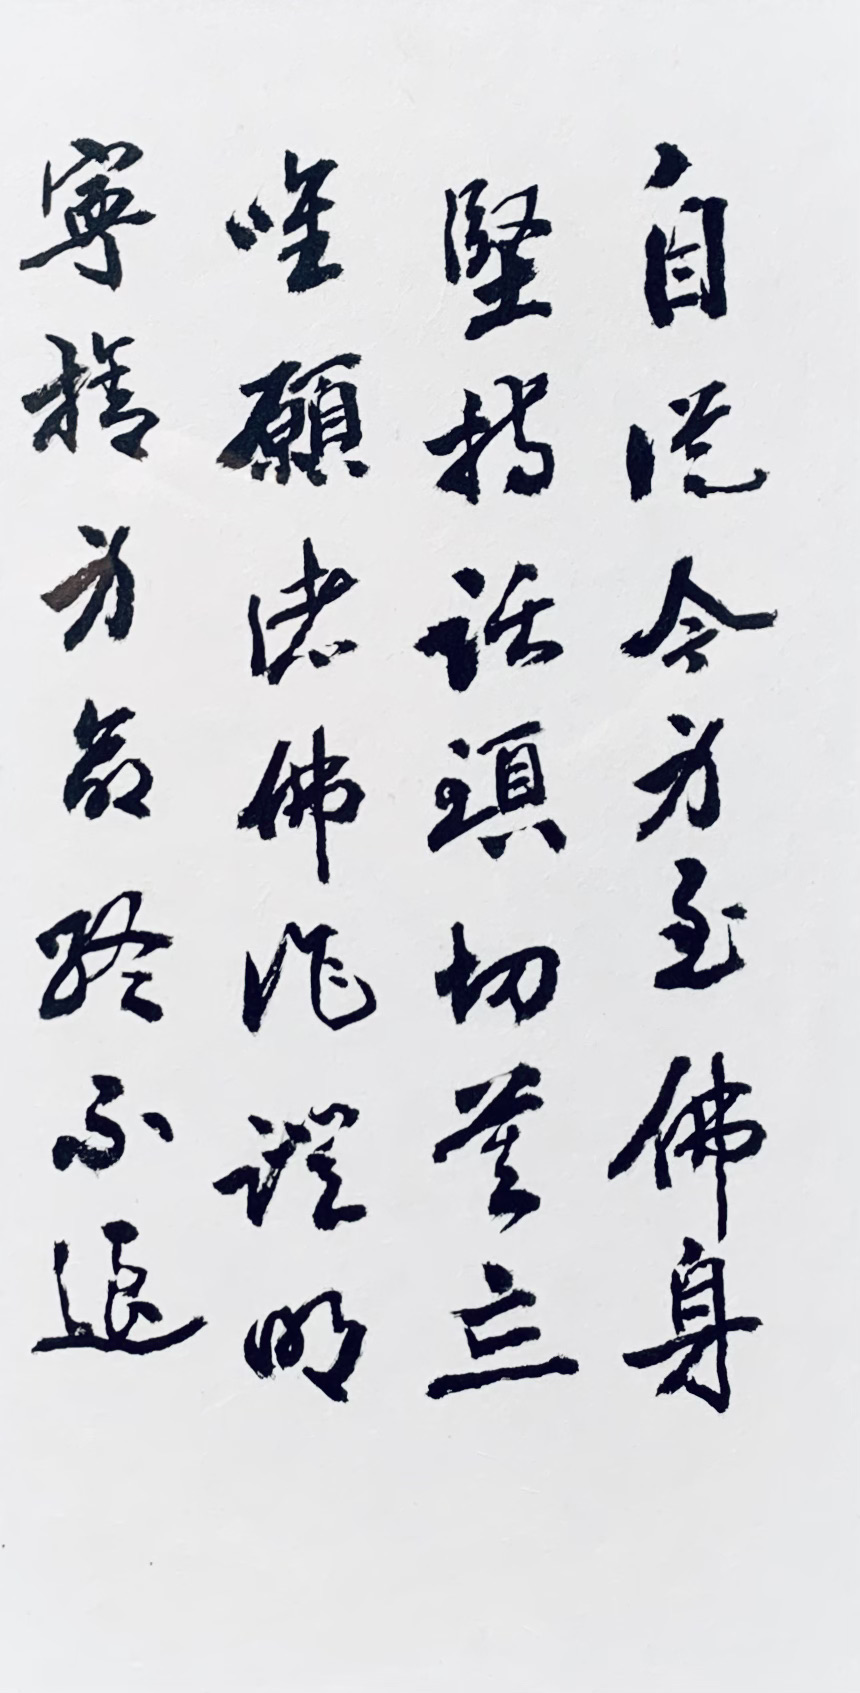 自從今身至佛身
堅持話頭切莫忘
唯願諸佛作證明
寧捨身命終不退